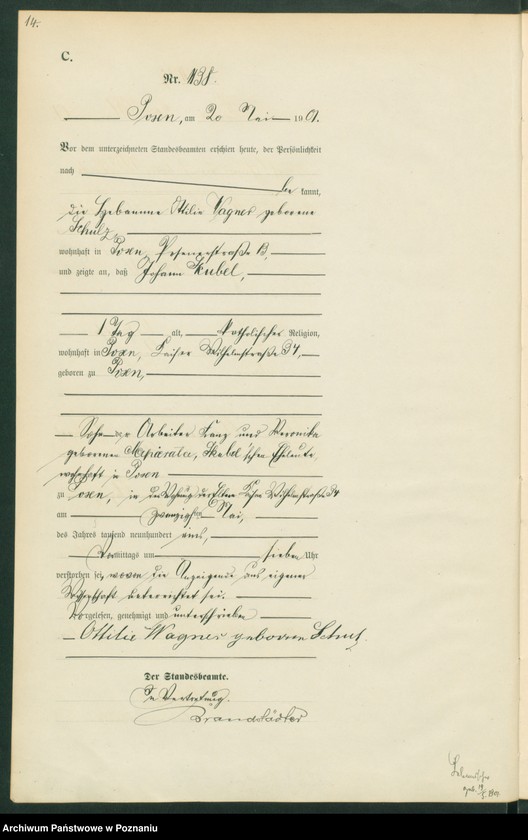 14.
C.
Nr. 138.
Posen, am 20 Mai 1901.
Vor dem unterzeichneten Standesbeamten erschien heute, der Persönlichkeit
nach
be kannt,
die Hebamme Ottilie Wagner geborene
Schulz,
wohnhaft in Posen,
und zeigte an, daß Johann Skubel,
1 Tag alt, katholischer Religion,
wohnhaft in Posen, Kaiser Wilhelmstraße 34,
geboren zu Posen,
Sohn der Arbeiter Franz und Veronika
geborenen Skubel'schen Eheleute,
wohnhaft in Posen
zu Posen, in der Wohnung der Eltern Kaiser Wilhelmstraße 34
am zwanzigsten Mai,
des Jahres tausend neunhundert eins,
Vormittags um sieben Uhr
verstorben sei, wovon die Anzeigende aus eigener
Wissenschaft unterrichtet sei.
Vorgelesen, genehmigt und unterschrieben
Ottilie Wagner geborene Schulz.
Der Standesbeamte.
In Vertretung.
Brandstädter
Archiwum Państwowe w Poznaniu